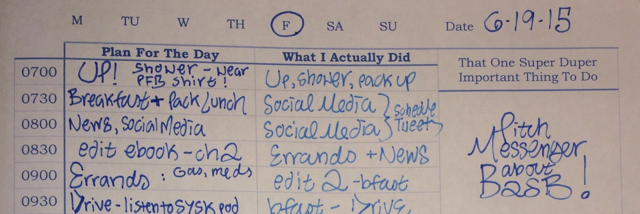 M TU W TH F SA SU Date 6-19-15
Plan For The Day What I Actually Did That One Super Duper
Important Thing To Do
0700 UP! shower - wear
PFB shirt! Up, shower, pack up
0730 Breakfast + pack lunch Social Media
0800 News, Social Media Social Media
Schedule
Tweets
0830 edit ebook - ch2 Errands + News
0900 Errands: Gas, meds edit 2 - bfast
0930 Drive - listen to SYSK pod bfast - Drive
Pitch
Messenger
about
B2SB!